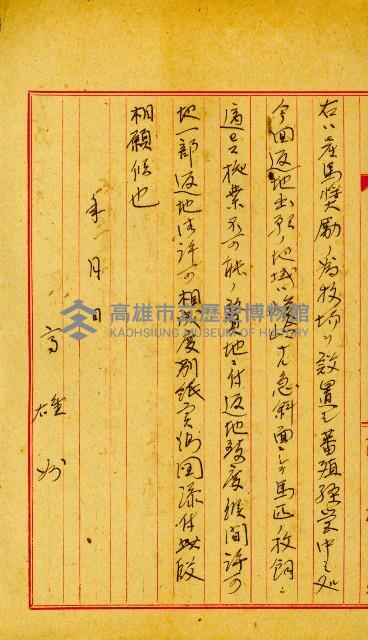 右ハ産馬奨励ノ為牧場ヲ設置シ蕃殖経営中ノ処
今回返地出願ノ地域ハ ナル急斜面ニシテ馬匹ノ放飼ニ
適セス 業不可能ノ 地ニ付返地致度候間許可
地一部返地御許可相成度別紙実測図添付此段
相願候也
年 月 日
高雄州
高雄市立歷史博物館
KAOHSIUNG MUSEUM OF HISTORY